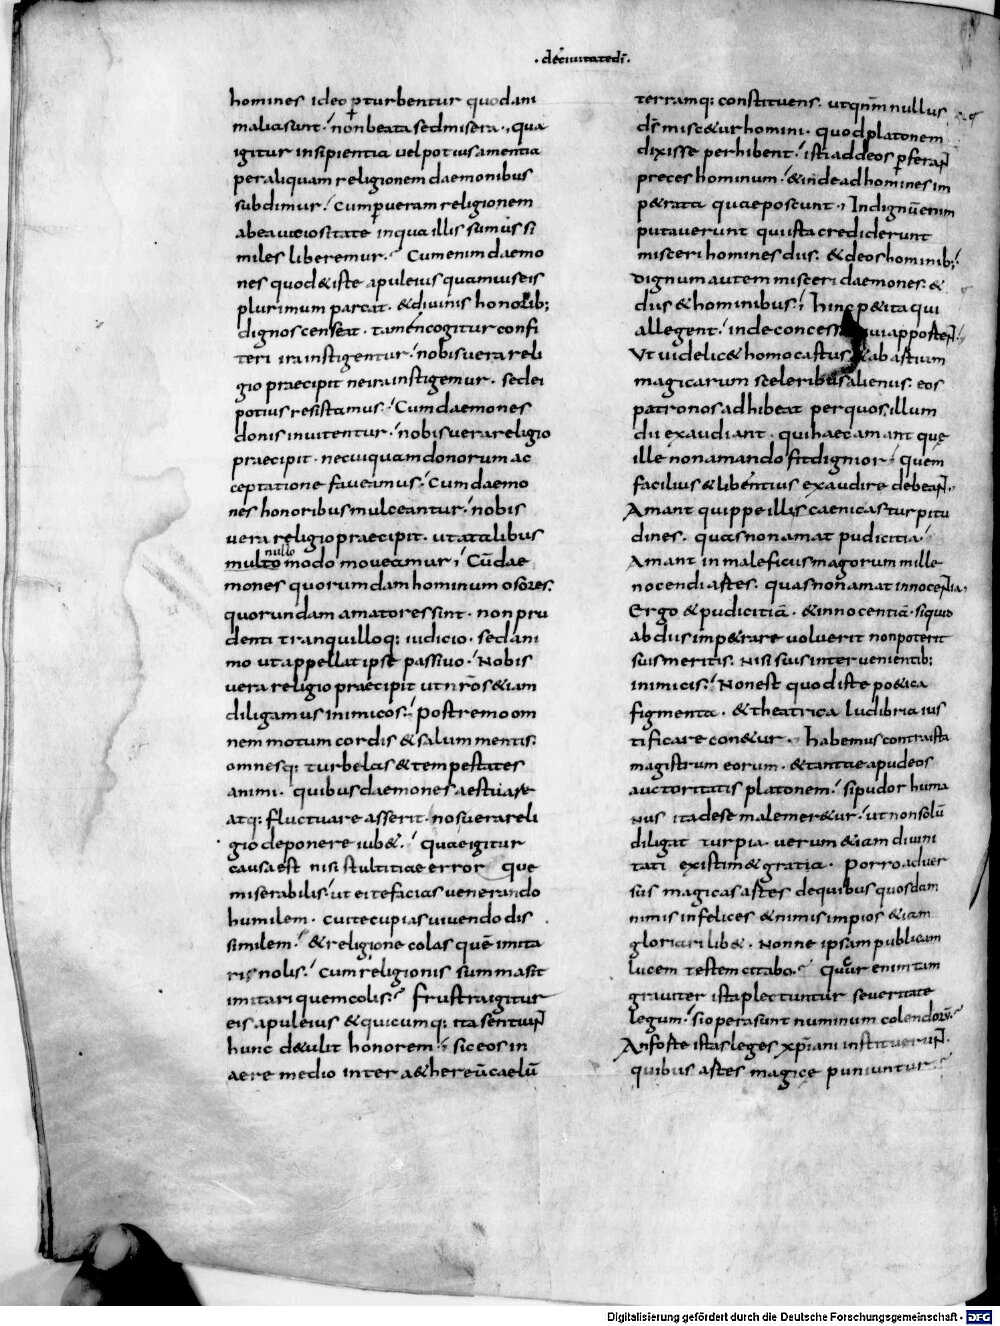 · deciuitatedī ·
homines ideo pturbentur quod ani
malia sunt · non beata sed misera · qua
igitur insipientia uel potius amentia
per aliquam religionem daemonibus
subdimur · Cum p ueram religionem
abea uitiositate in qua illis sumus si
miles liberemur · Cum enim daemo
nes quod & iste apuleius quamuis eis
plurimum parcat · & diuinis honorib;
dignos censeat · tamen cogitur confi
teri ira instigentur · nobis uera reli
gio praecipit ne ira instigemur · sed ei
potius resistamus · Cum daemones
donis inuitentur · nobis uera religio
praecipit · ne cuiquam donorum ac
ceptatione faueamus · Cum daemo
nes honoribus mulceantur · nobis
uera religio praecipit · ut a talibus
nullo
multo modo moueamur · Cū dae
mones quorumdam hominum osores ·
quorundam amatores sint · non pru
denti tranquilloq; iudicio · sed ani
mo ut appellat ipse passiuo · Nobis
uera religio praecipit ut nr̄os & iam
diligamus inimicos · postremo om
nem motum cordis & salum mentis ·
omnesq; turbelas & tempestates
animi · quibus daemones aestuare
atq; fluctuare asserit · nos uera reli
gio deponere iub& · Quae igitur
causa est nisi stultitiae error que
miserabilis · ut ei te facias uenerando
humilem · cui te cupias uiuendo dis
similem · & religione colas quē imita
ri nolis · cum religionis summa sit
imitari quem colis · frustra igitur
eis apuleius & quicumq; ita sentiunt
hunc detulit honorem · sic eos in
aere medio inter a&hereū caelū
terramq; constituens · ut qnm̄ nullus
ds̄ misc&ur homini · quod platonem
dixisse perhibent · isti ad deos pferant
preces hominum · & inde ad homines im
p&rata quae poscunt · Indignū enim
putauerunt qui ista crediderunt
misceri homines diis · & deos hominib;
dignum autem misceri daemones · &
diis & hominibus · hinc p&ita qui
allegent · inde concessa qui apportent ·
Ut uidelic& homo castus & ab artium
magicarum sceleribus alienus · eos
patronos adhibeat per quos illum
dii exaudiant · qui haec amant que
ille non amando fit dignior · quem
facilius & libentius exaudire debeant ·
Amant quippe illi scaenicas turpitu
dines · quas non amat pudicitia ·
Amant in maleficiis magorum mille
nocendi artes · quas non amat innocentia ·
Ergo & pudicitiā · & innocentiā · siquid
ab diis imp&rare uoluerit non poterit
suis meritis · nisi suis interuenientib;
inimicis · Non est quod iste po&ica
figmenta · & theatrica ludibria ius
tificare con&ur · habemus contra ista
magistrum eorum · & tantae apud eos
auctoritatis platonem · si pudor huma
nus ita de se male mer&ur · ut non solū
diligat turpia uerum & iam diuini
tati existim& grata · porro aduer
sus magicas artes de quibus quosdam
nimis infelices & nimis impios & iam
gloriari lib& · Nonne ipsam publicam
lucem testem citabo · Quur enim tam
grauiter ista plectuntur seueritate
legum · si opera sunt numinum colendorū ·
An forte istas leges xp̄iani instituerunt ·
quibus artes magice puniuntur
Digitalisierung gefördert durch die Deutsche Forschungsgemeinschaft - DFG